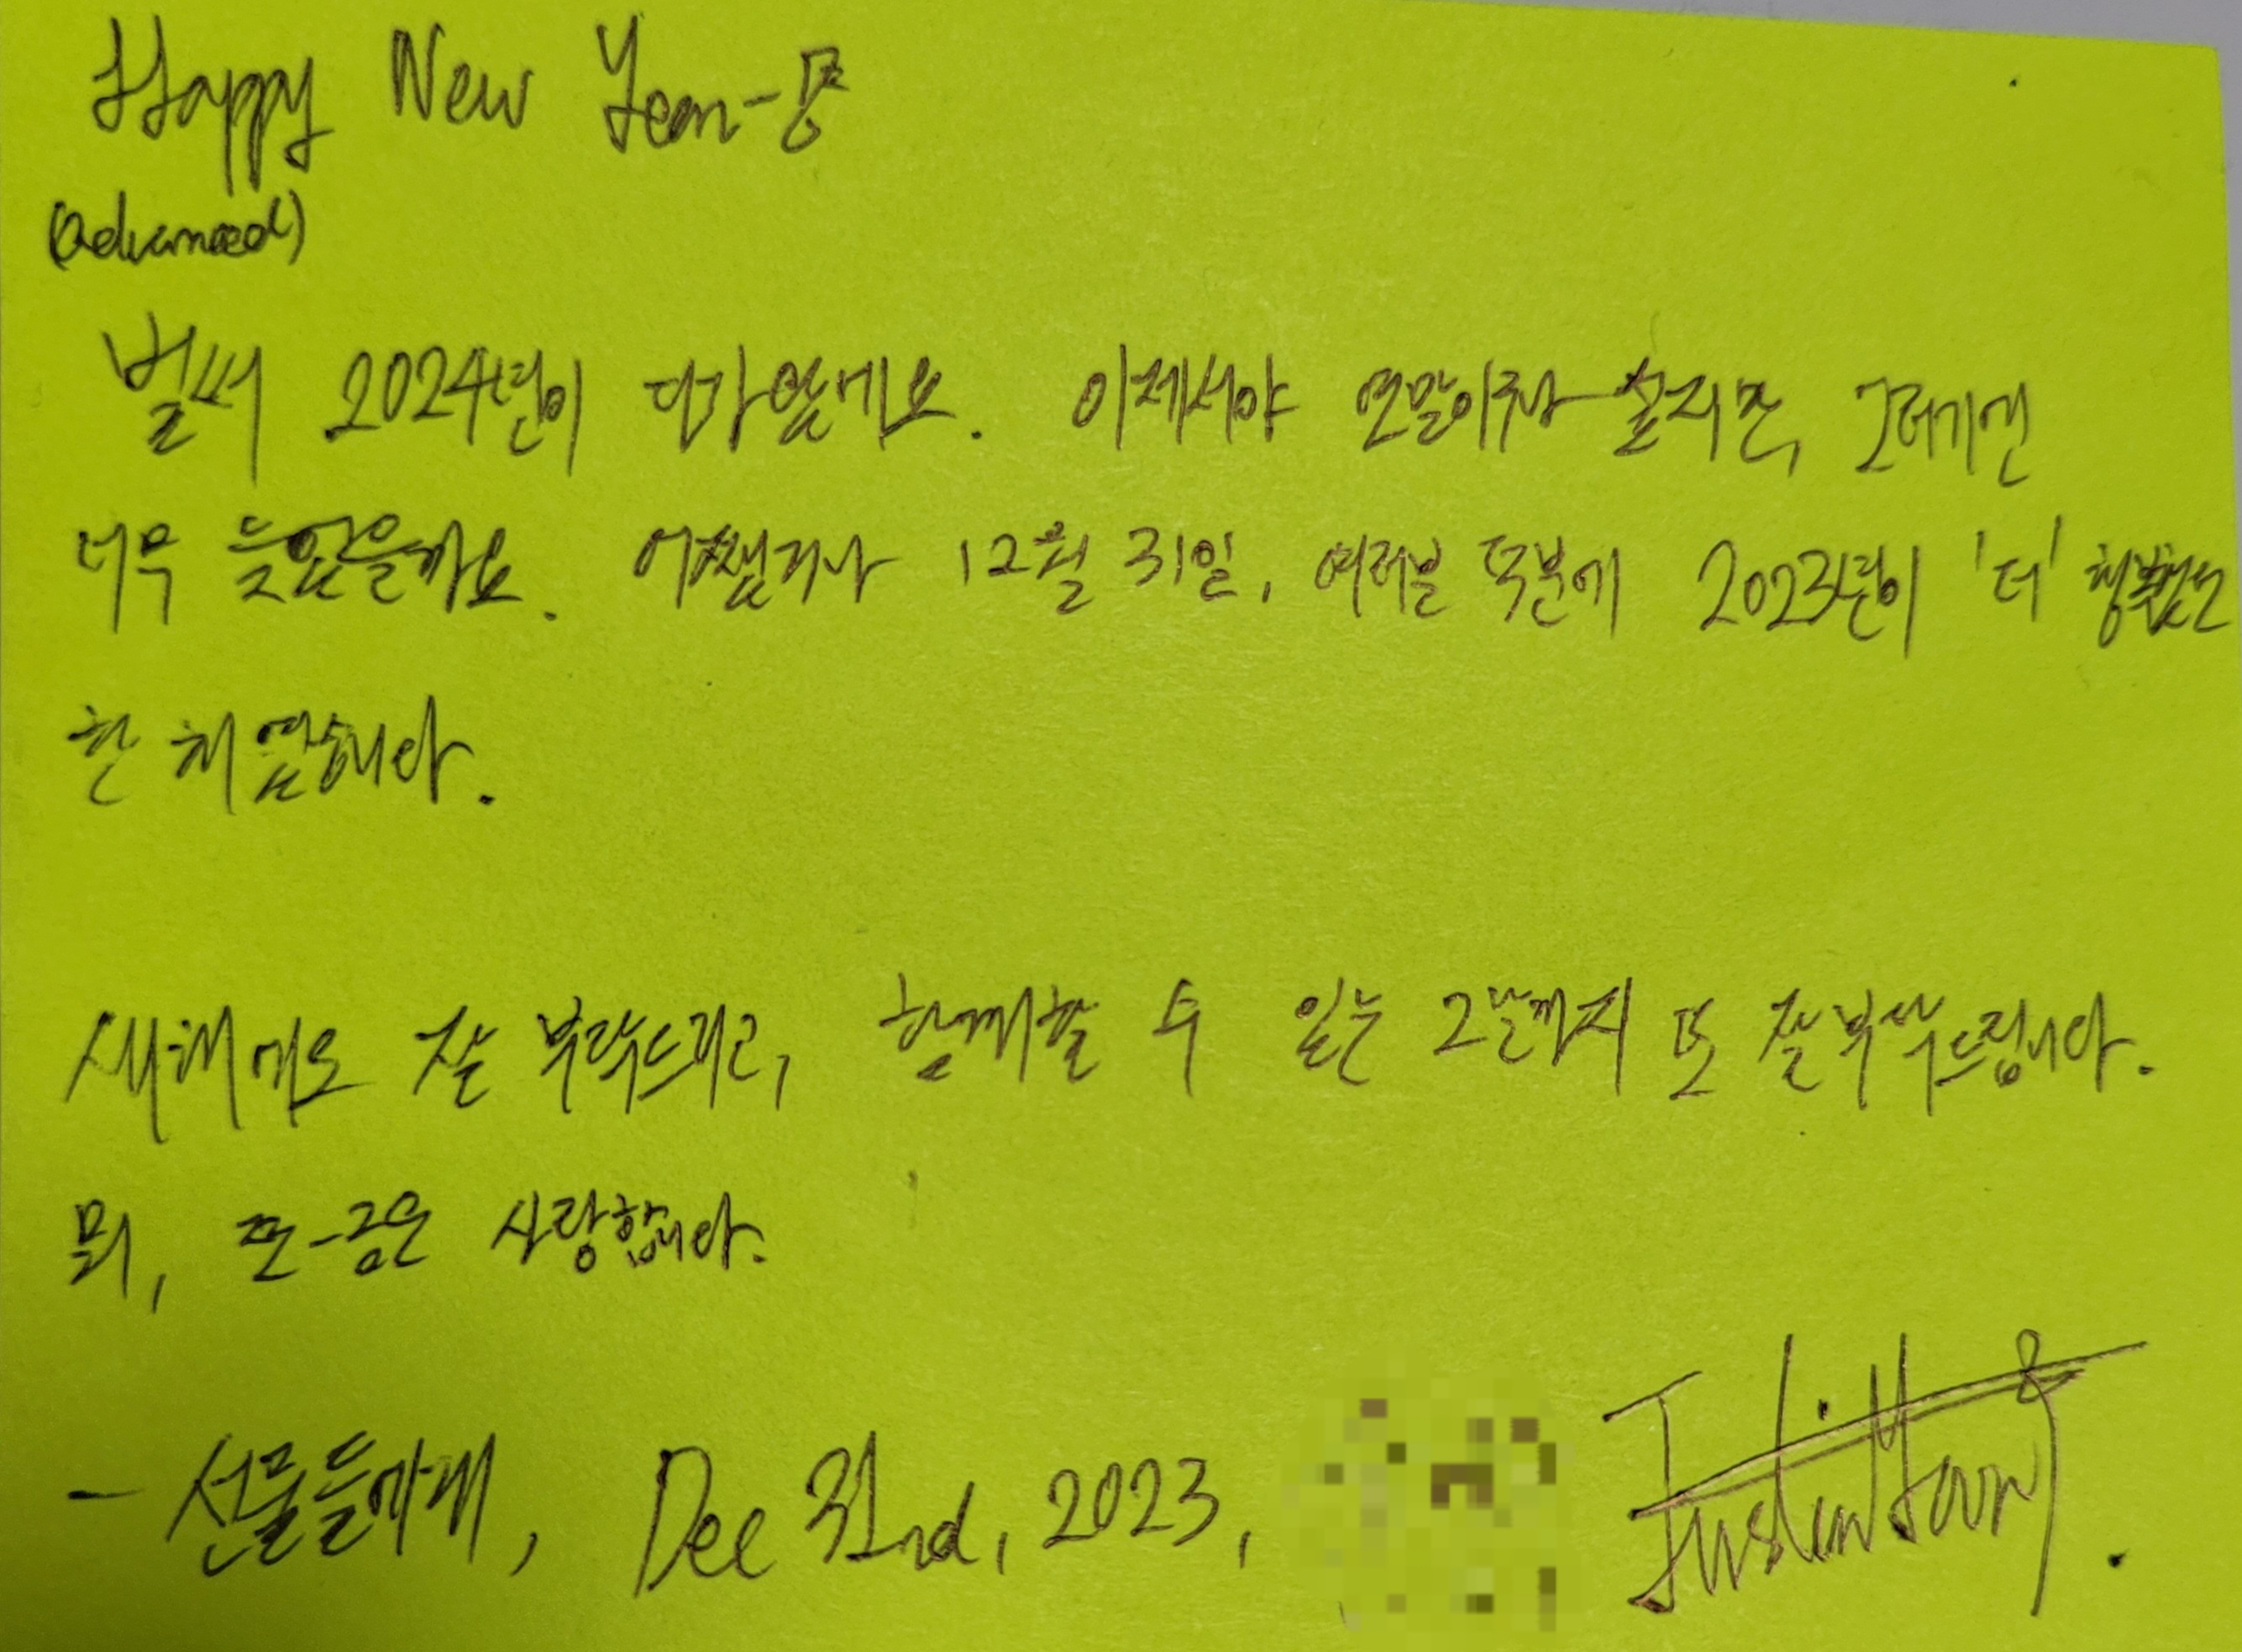 Happy New Year-쭝
(advanced)
벌써 2024년이 다가왔네요. 이제서야 연말이구나 싶지만, 그러기엔
너무 늦었을까요. 어쨌거나 12월 31일, 여러분 덕분에 2023년이 '더' 행복했던
한 해였습니다.
새해에도 잘 부탁드리고, 함께할 수 있는 그날까지 또 잘 부탁드립니다.
뭐, 쪼-금은 사랑합니다.
- 선물들에게, Dec 31nd, 2023,